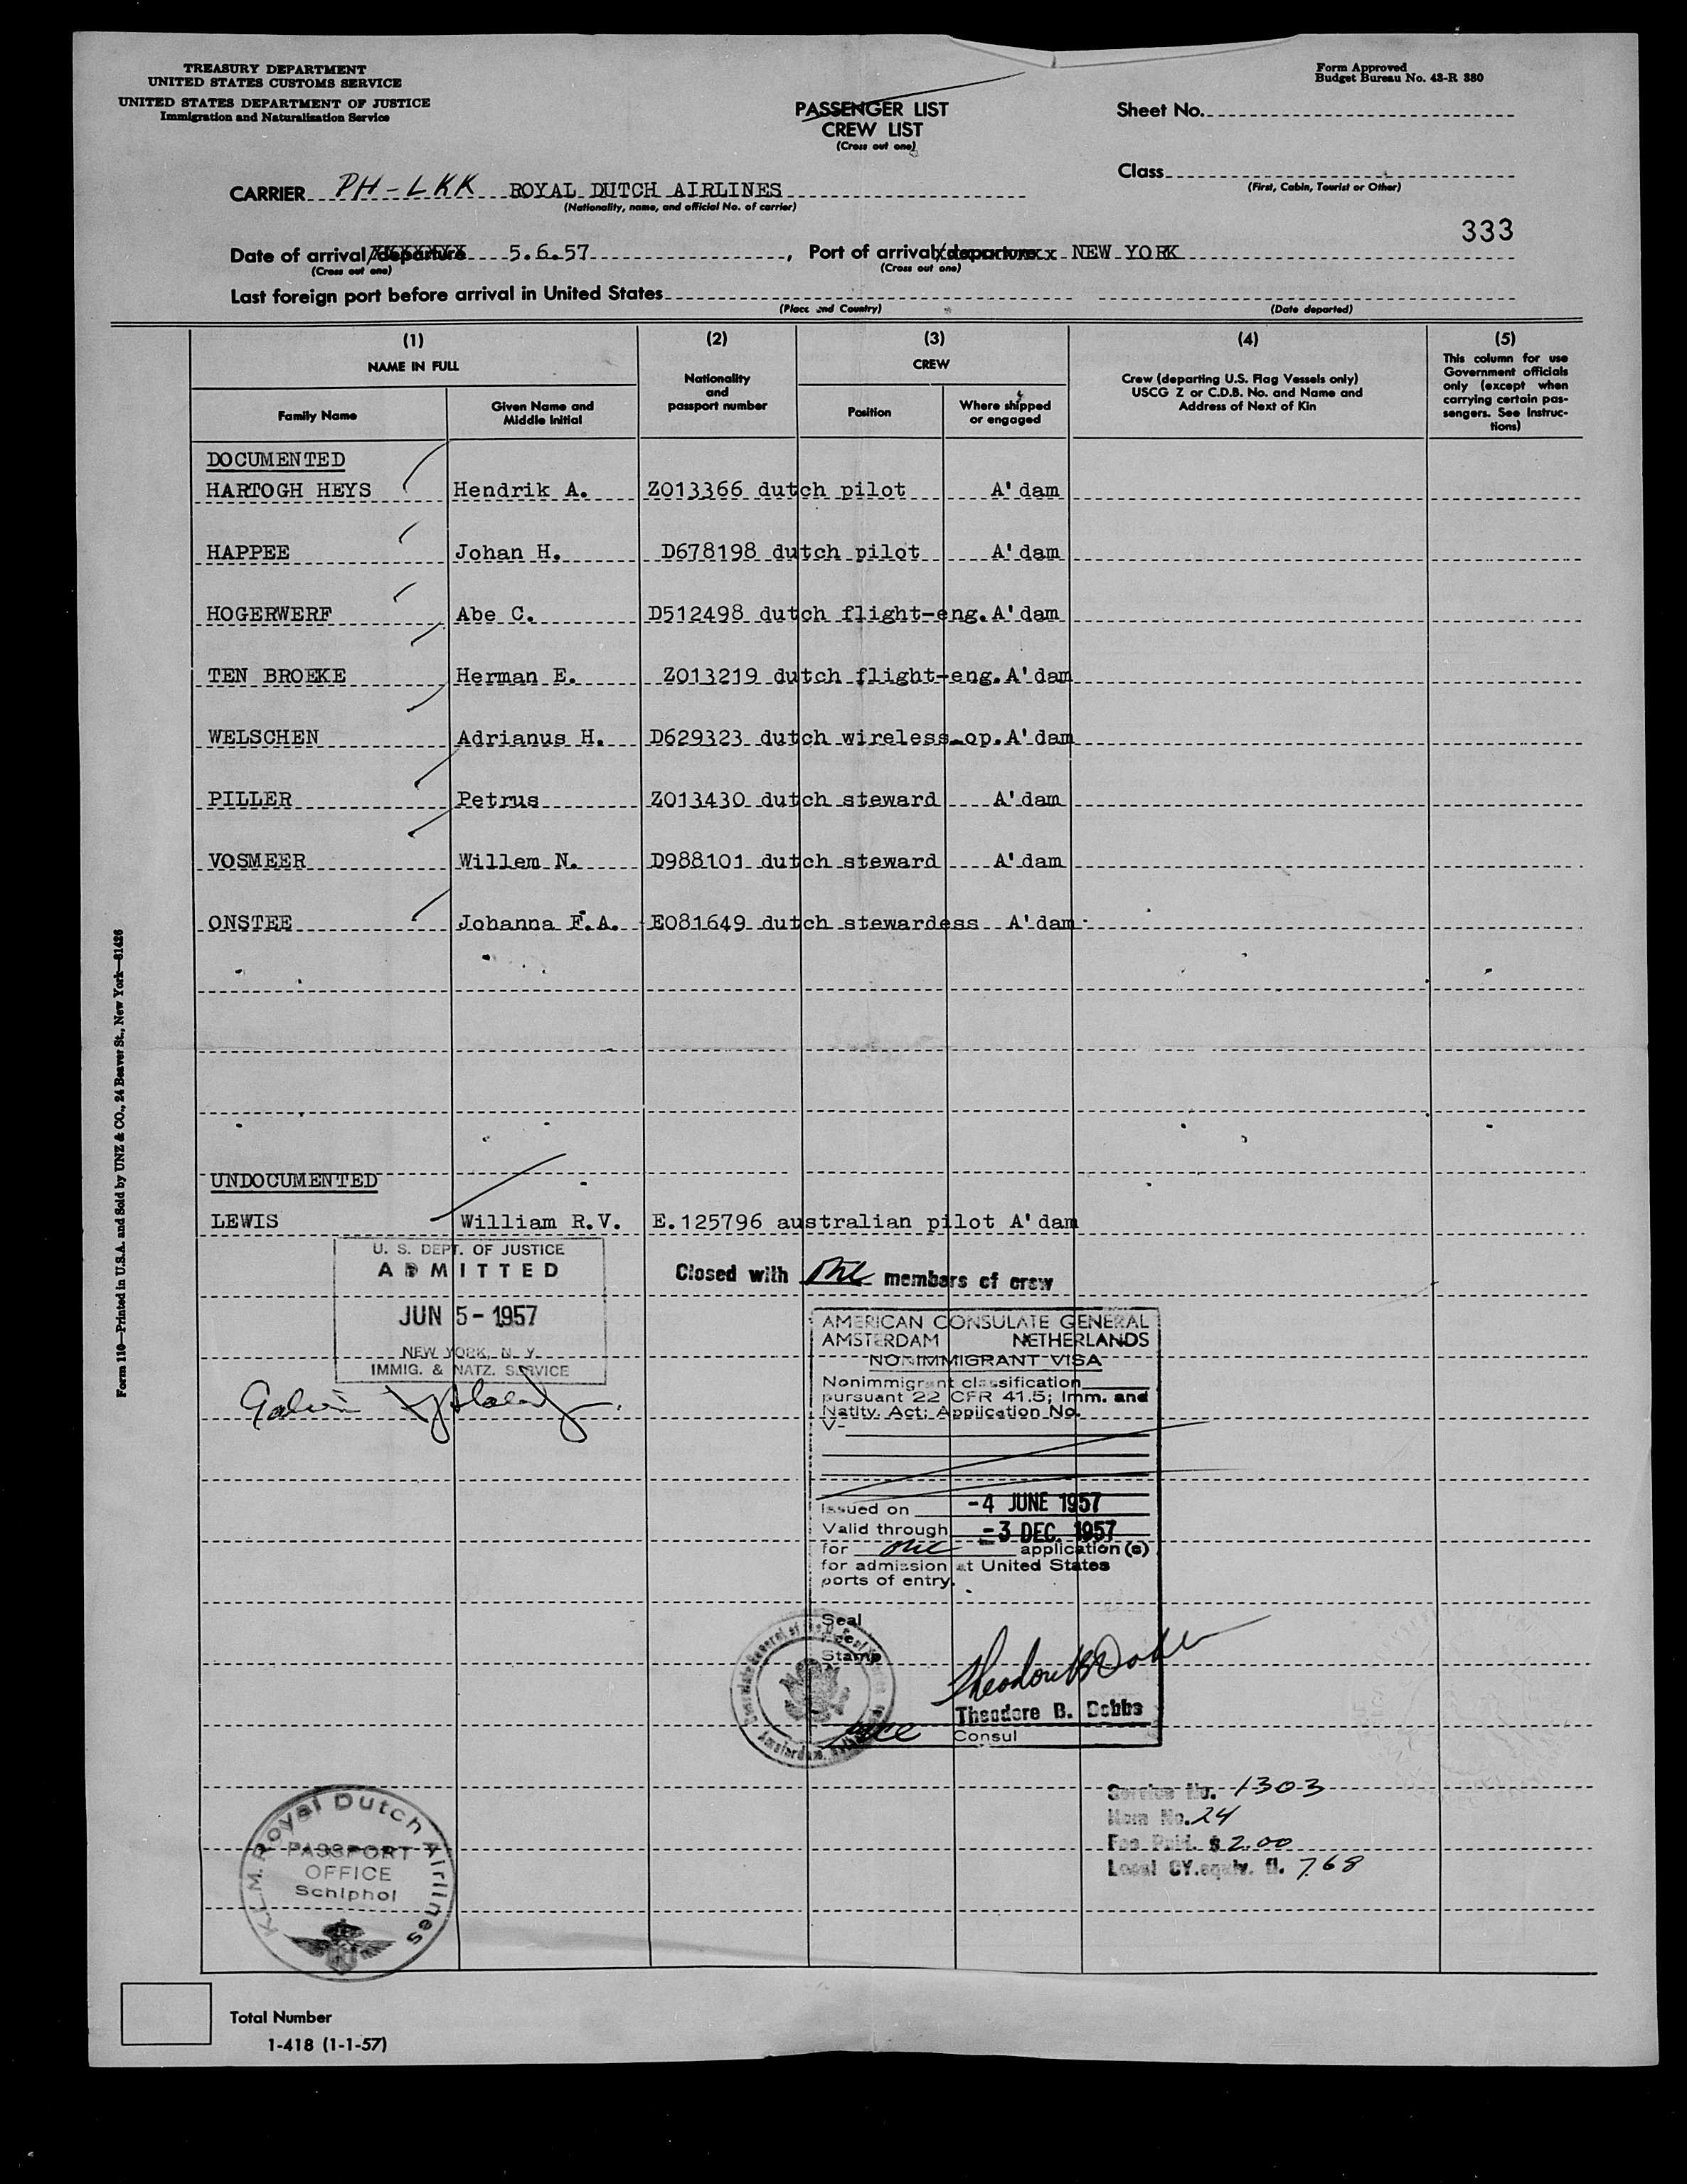 TREASURY DEPARTMENT
UNITED STATES CUSTOMS SERVICE
UNITED STATES DEPARTMENT OF JUSTICE
Immigration and Naturalization Service
Form Approved
Budget Bureau No. 43-R 380
PASSENGER LIST
CREW LIST
(Cross out one)
Sheet No.
Class
(First, Cabin, Tourist or Other)
CARRIER PH-LKK ROYAL DUTCH AIRLINES
(Nationality, name, and official No. of carrier)
333
Date of arrival/departure 5.6.57, Port of arrival/departure NEW YORK
(Cross out one) (Cross out one)
Last foreign port before arrival in United States
(Place and Country) (Date departed)
(1) (2) (3) (4) (5)
NAME IN FULL
Nationality and passport number
CREW
Crew (departing U.S. Flag Vessels only)
USCG Z or C.D.B. No. and Name and
Address of Next of Kin
This column for use
Government officials
only (except when
carrying certain pas-
sengers. See Instruc-
tions)
Family Name
Given Name and
Middle Initial
Position
Where shipped
or engaged
DOCUMENTED
HARTOGH HEYS Hendrik A. Z013366 dutch pilot A'dam
HAPPEE Johan H. D678198 dutch pilot A'dam
HOGERWERF Abe C. D512498 dutch flight-eng. A'dam
TEN BROEKE Herman E. Z013219 dutch flight-eng. A'dam
WELSCHEN Adrianus H. D629323 dutch wireless-op. A'dam
PILLER Petrus Z013430 dutch steward A'dam
VOSMEER Willem N. D988101 dutch steward A'dam
ONSTEE Johanna F.A. E081649 dutch stewardess A'dam
UNDOCUMENTED
LEWIS William R.V. E.125796 australian pilot A'dam
U. S. DEPT. OF JUSTICE
ADMITTED
JUN 5 - 1957
NEW YORK, N. Y.
IMMIG. & NATZ. SERVICE
Closed with one members of crew
AMERICAN CONSULATE GENERAL
AMSTERDAM NETHERLANDS
NONIMMIGRANT VISA
Nonimmigrant classification
pursuant 22 CFR 41.5; Imm. and
Natlty. Act; Application No.
V-
Issued on -4 JUNE 1957
Valid through -3 DEC. 1957
for one application(s)
for admission at United States
ports of entry.
Seal
Stamp
Theodore B. Dobbs
Theodore B. Dobbs
Consul
Service No. 1303
Item No. 24
Fee Paid. $ 2.00
Local CY.equiv. fl. 7.68
K.L.M. Royal Dutch Airlines
PASSPORT
OFFICE
Schiphol
Total Number
I-418 (1-1-57)
Form 110—Printed in U.S.A. and Sold by UNZ & CO., 24 Beaver St., New York—81426